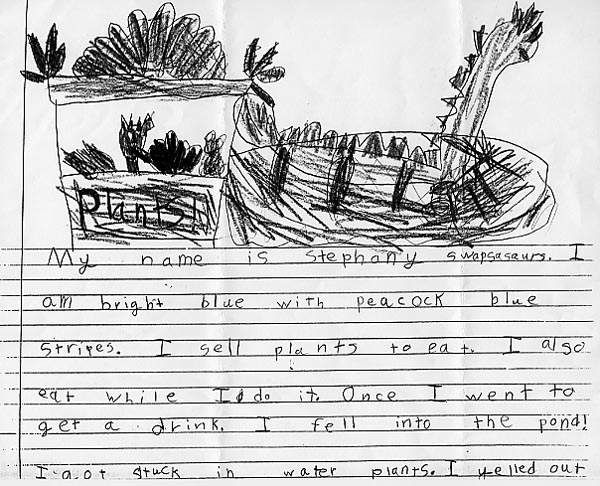 Plants!
My name is Stephany swapsasaurs. I
am bright blue with peacock blue
stripes. I sell plants to eat. I also
eat while I do it. Once I went to
get a drink. I fell into the pond!
I got stuck in water plants. I yelled out